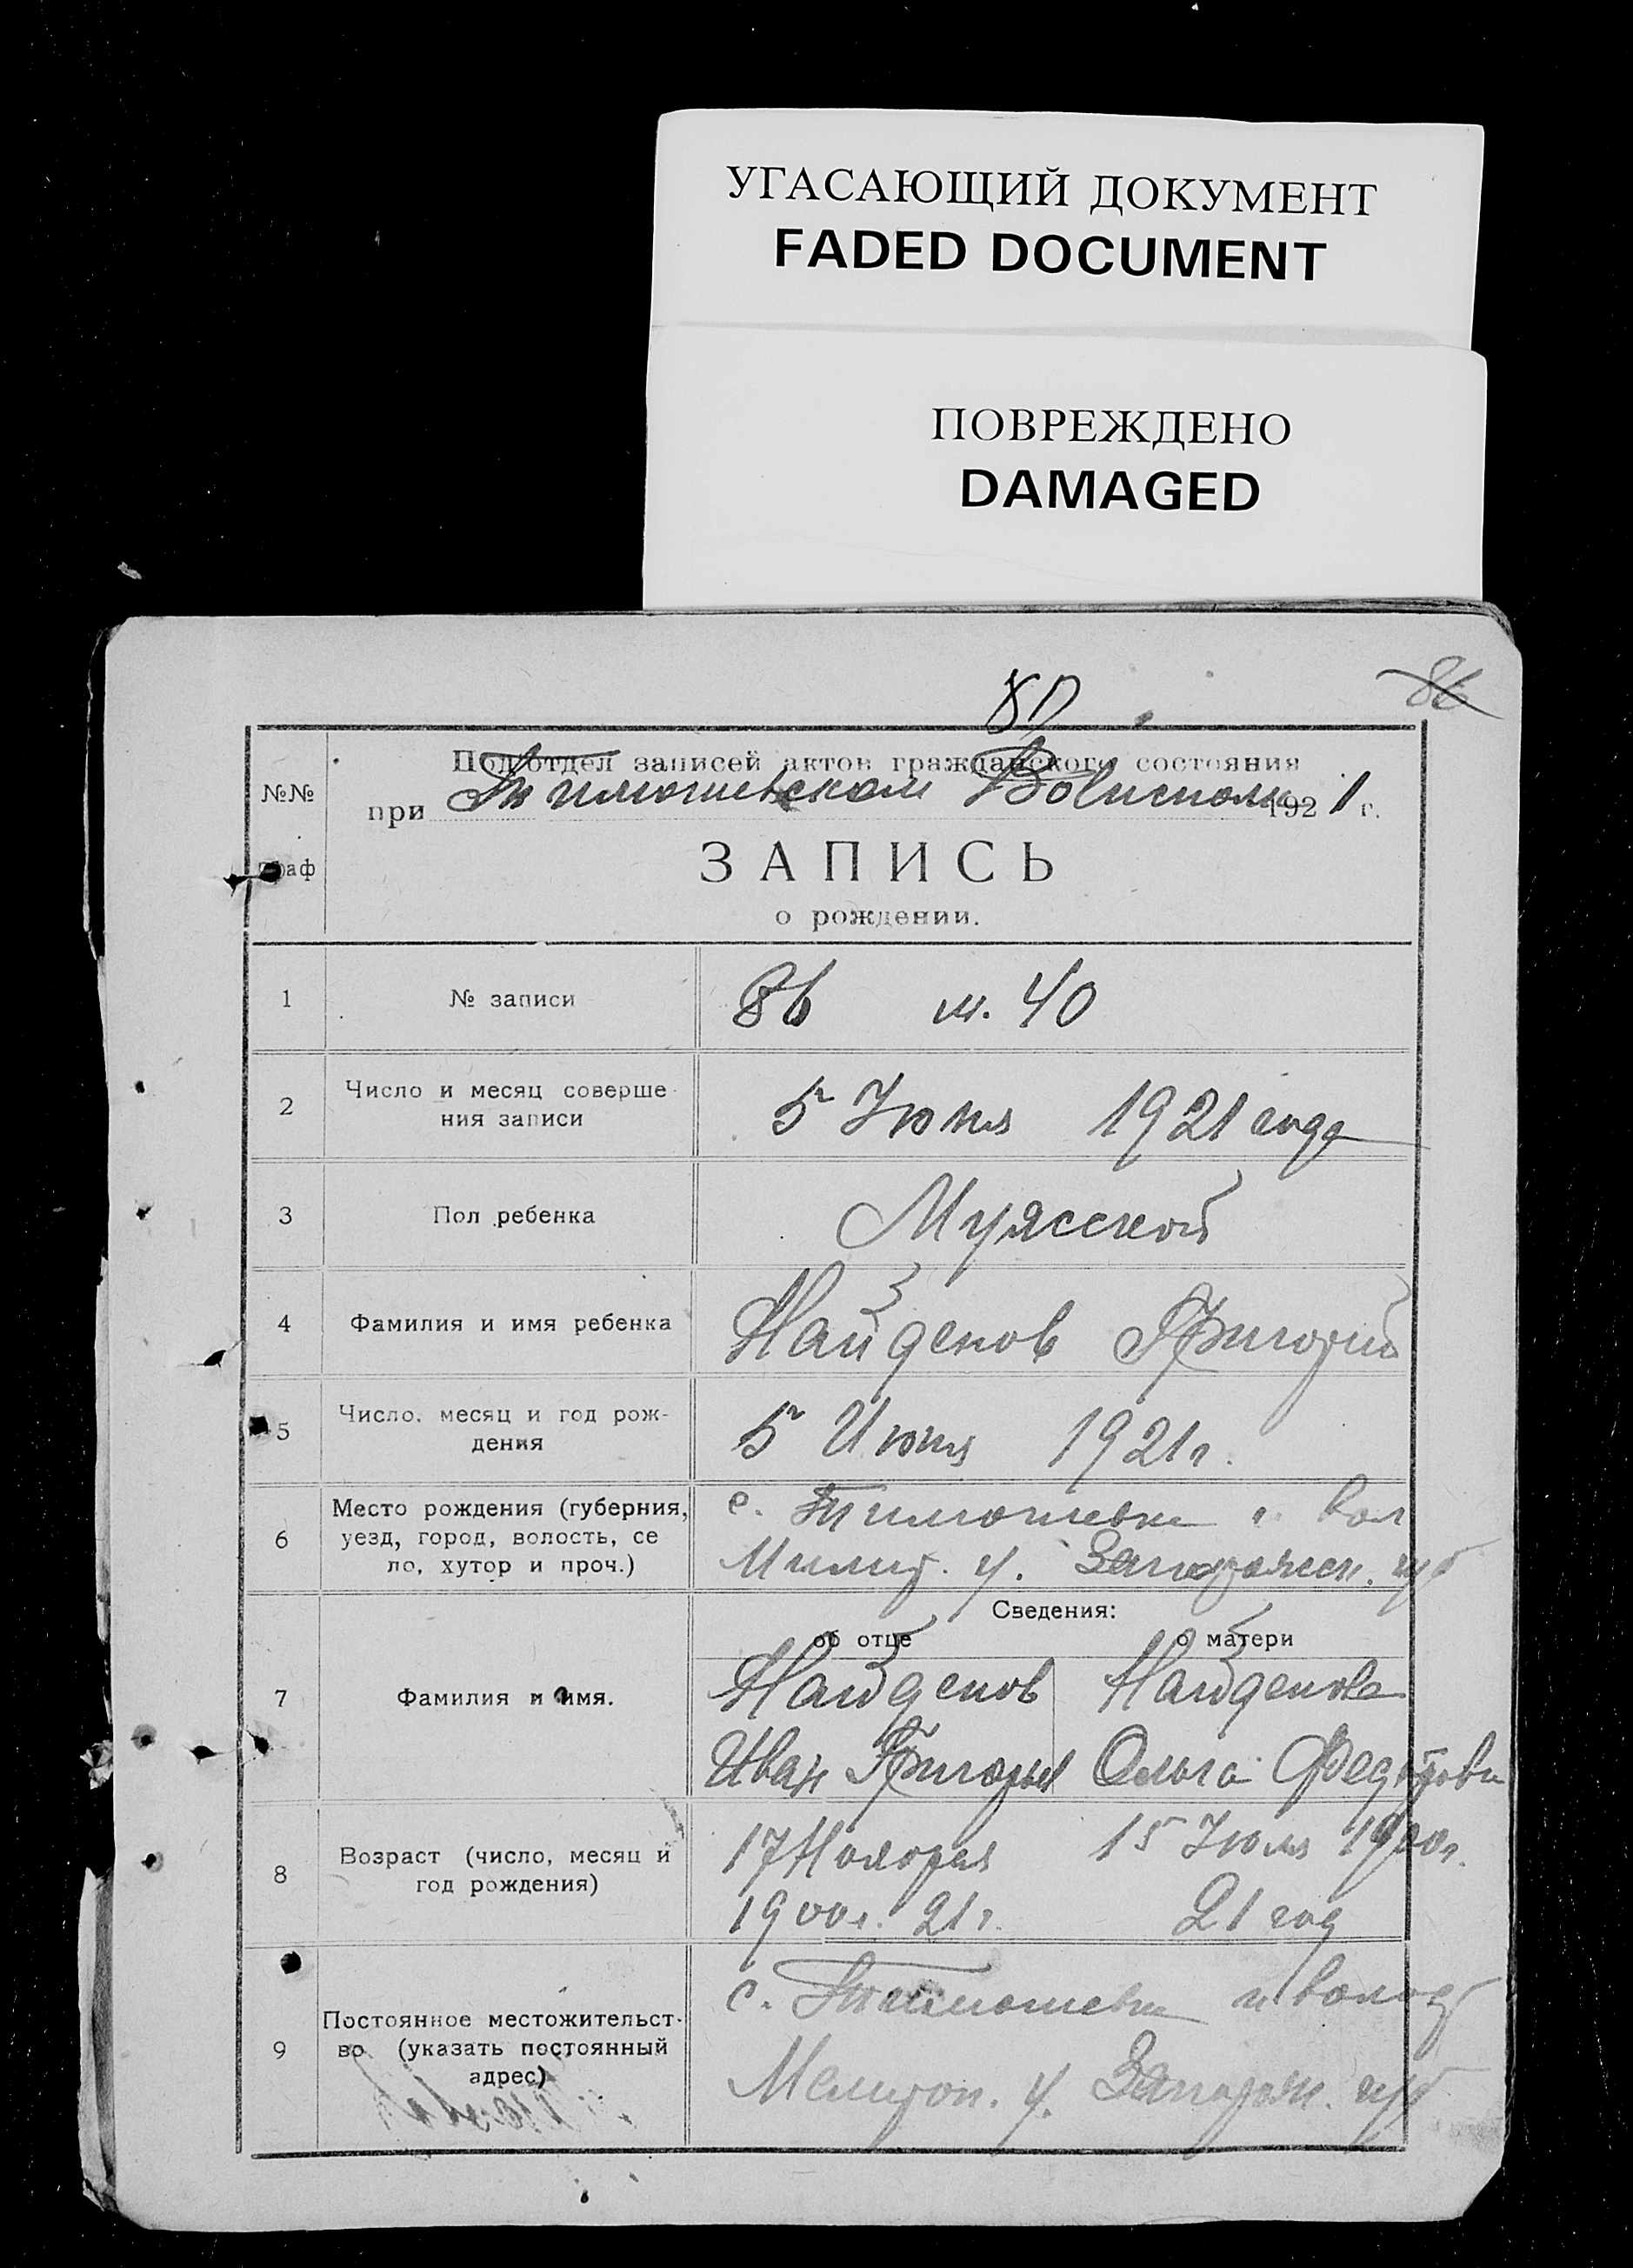 УГАСАЮЩИЙ ДОКУМЕНТ
FADED DOCUMENT
ПОВРЕЖДЕНО
DAMAGED
86
Подотдел записей актов гражданского состояния
№№ граф
при Тимошевском Волисполк. 1921 г.
ЗАПИСЬ
о рождении.
1 № записи 86 м. 40
2 Число и месяц соверше-
ния записи
5 Июня 1921 года
3 Пол ребенка Мужской
4 Фамилия и имя ребенка Найденов Григорий
5 Число, месяц и год рож-
дения
5 Июня 1921 г.
6 Место рождения (губерния,
уезд, город, волость, се
ло, хутор и проч.)
с. Тимошевка и вол
Мелит. у. Запорожск. губ
Сведения:
об отце о матери
7 Фамилия и имя.
Найденов Найденова
Иван Григорьев Ольга Федотовн
8 Возраст (число, месяц и
год рождения)
17 Ноября 15 Июля 1900 г.
1900 г. 21 г. 21 год
9 Постоянное местожительст-
во (указать постоянный
адрес)
с. Тимошевка и волост
Мелитоп. у. Запорож. губ